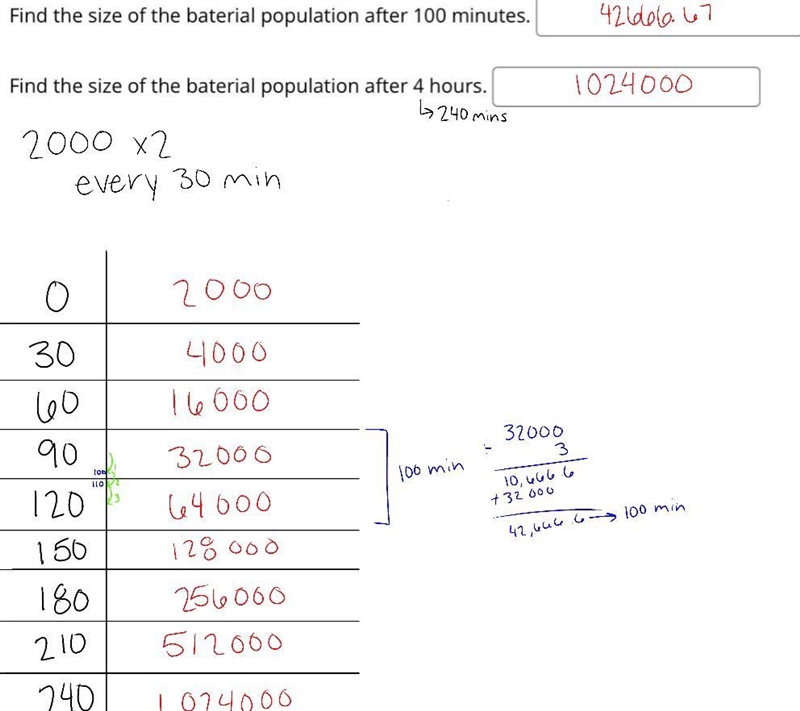 Find the size of the baterial population after 100 minutes. 42666.67
Find the size of the baterial population after 4 hours. 1024000
↳240 mins
2000 x2
every 30 min
0 2000
30 4000
60 16000
90 32000
100
110
1
2
3
120 64000
150 128000
180 256000
210 512000
240 1024000
100 min
32000
÷ 3
10,666 6
+32 000
42,666.6 → 100 min